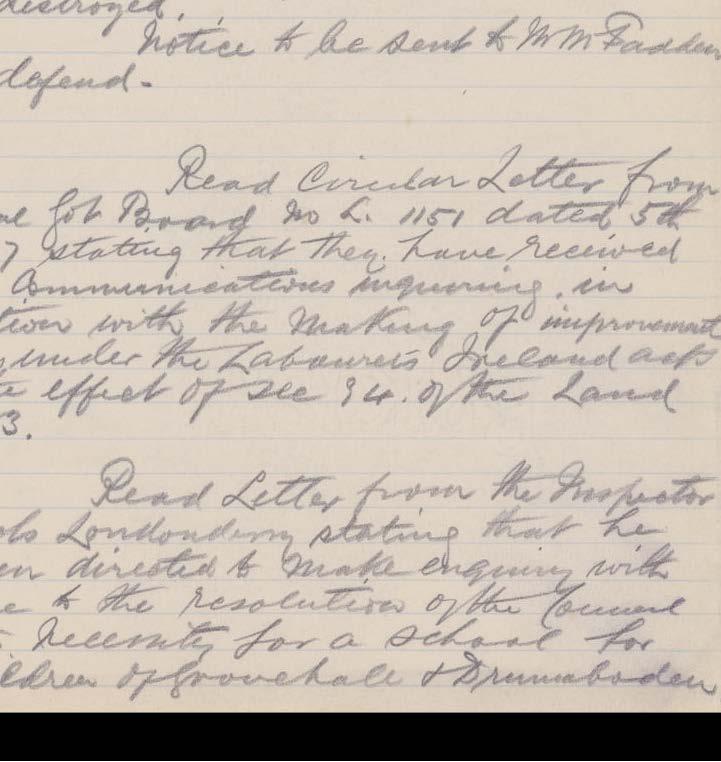 destroyed.
Notice to be sent to Wm McFadden
defend -
Read Circular Letter from
Gov Board No L. 1151 dated 5th
7 stating that they have received
Communications inquiring in
tion with the making of improvement
under the Labourers Ireland acts
effect of sec 94. of the Land
3.
Read Letter from the Inspector
ols Londonderry stating that he
en directed to make enquiry with
e to the resolution of the Council
necessity for a school for
ildren of Grovehall & Drumaboden